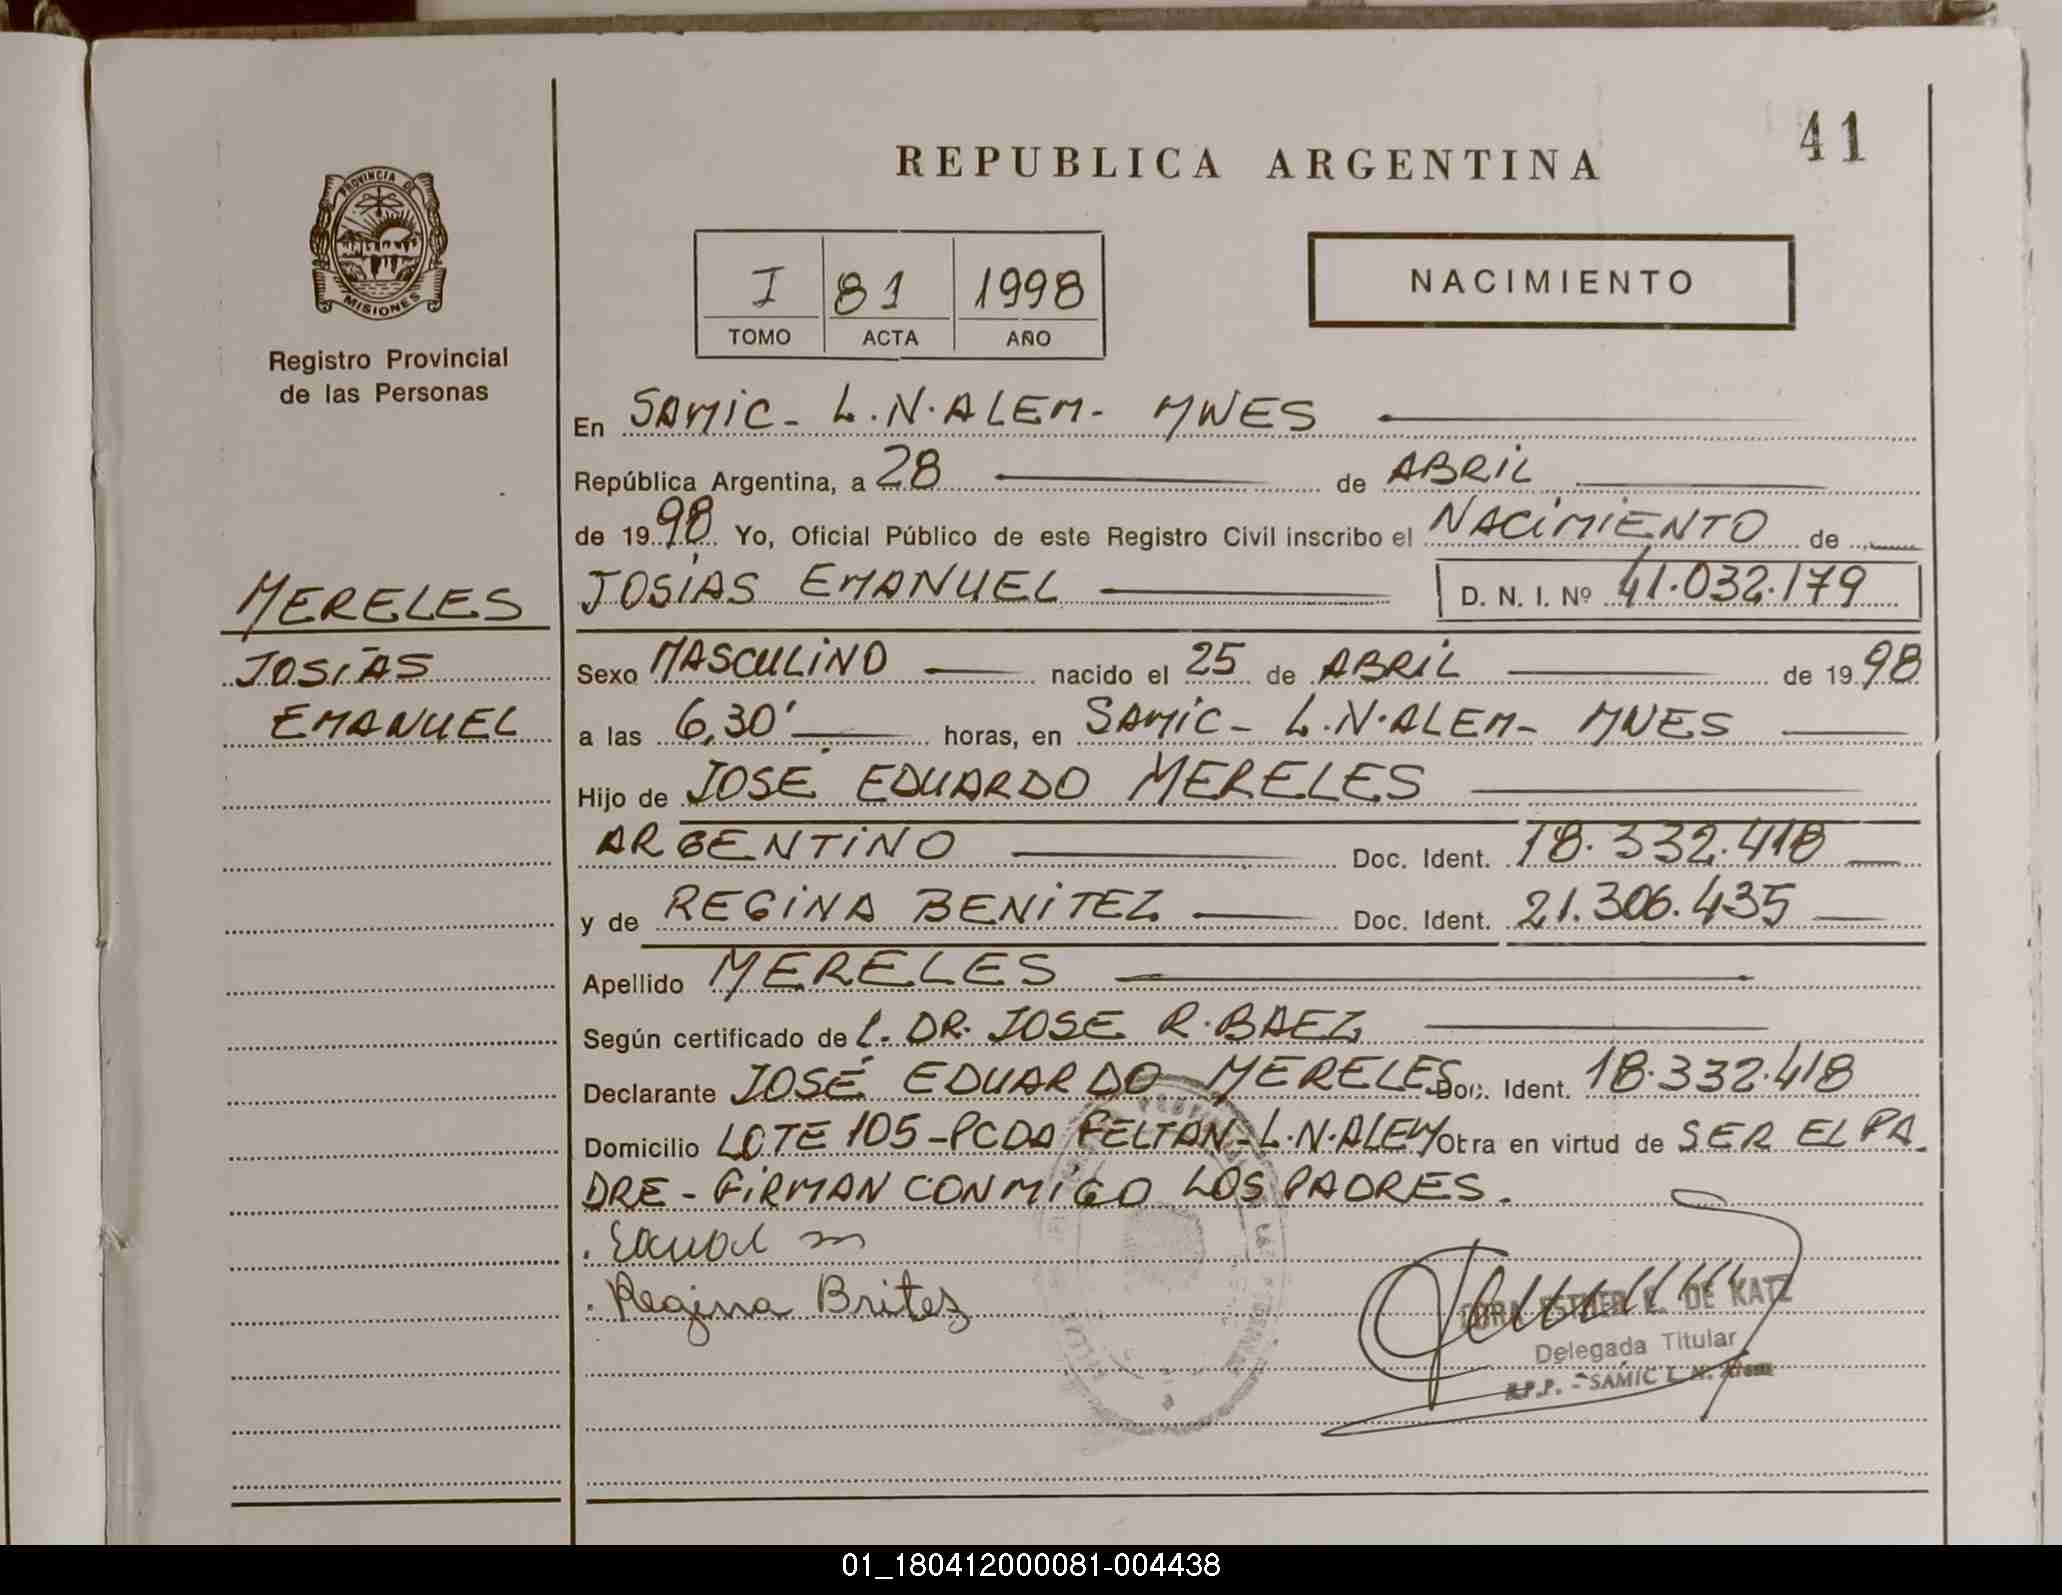 41
REPUBLICA ARGENTINA
PROVINCIA DE
MISIONES
Registro Provincial
de las Personas
I 81 1998
TOMO ACTA AÑO
NACIMIENTO
En SAMIC - L.N. ALEM - MNES
República Argentina, a 28 de ABRIL
de 1998 Yo, Oficial Público de este Registro Civil inscribo el NACIMIENTO de
MERELES
JOSÍAS
EMANUEL
JOSÍAS EMANUEL D. N. I. Nº 41.032.179
Sexo MASCULINO nacido el 25 de ABRIL de 1998
a las 6,30' horas, en SAMIC - L.N. ALEM - MNES
Hijo de JOSÉ EDUARDO MERELES
ARGENTINO Doc. Ident. 18.332.418
y de REGINA BENITEZ Doc. Ident. 21.306.435
Apellido MERELES
Según certificado de l. DR. JOSE R. BAEZ
Declarante JOSÉ EDUARDO MERELES Doc. Ident. 18.332.418
Domicilio LOTE 105 - PCDA BELTRAN - L.N. ALEM Obra en virtud de SER EL PA
DRE - FIRMAN CONMIGO LOS PADRES.
Regina Britez
ESTHER K. DE KATZ
Delegada Titular
R.P.P. - SAMIC L. N. Alem
01_180412000081-004438